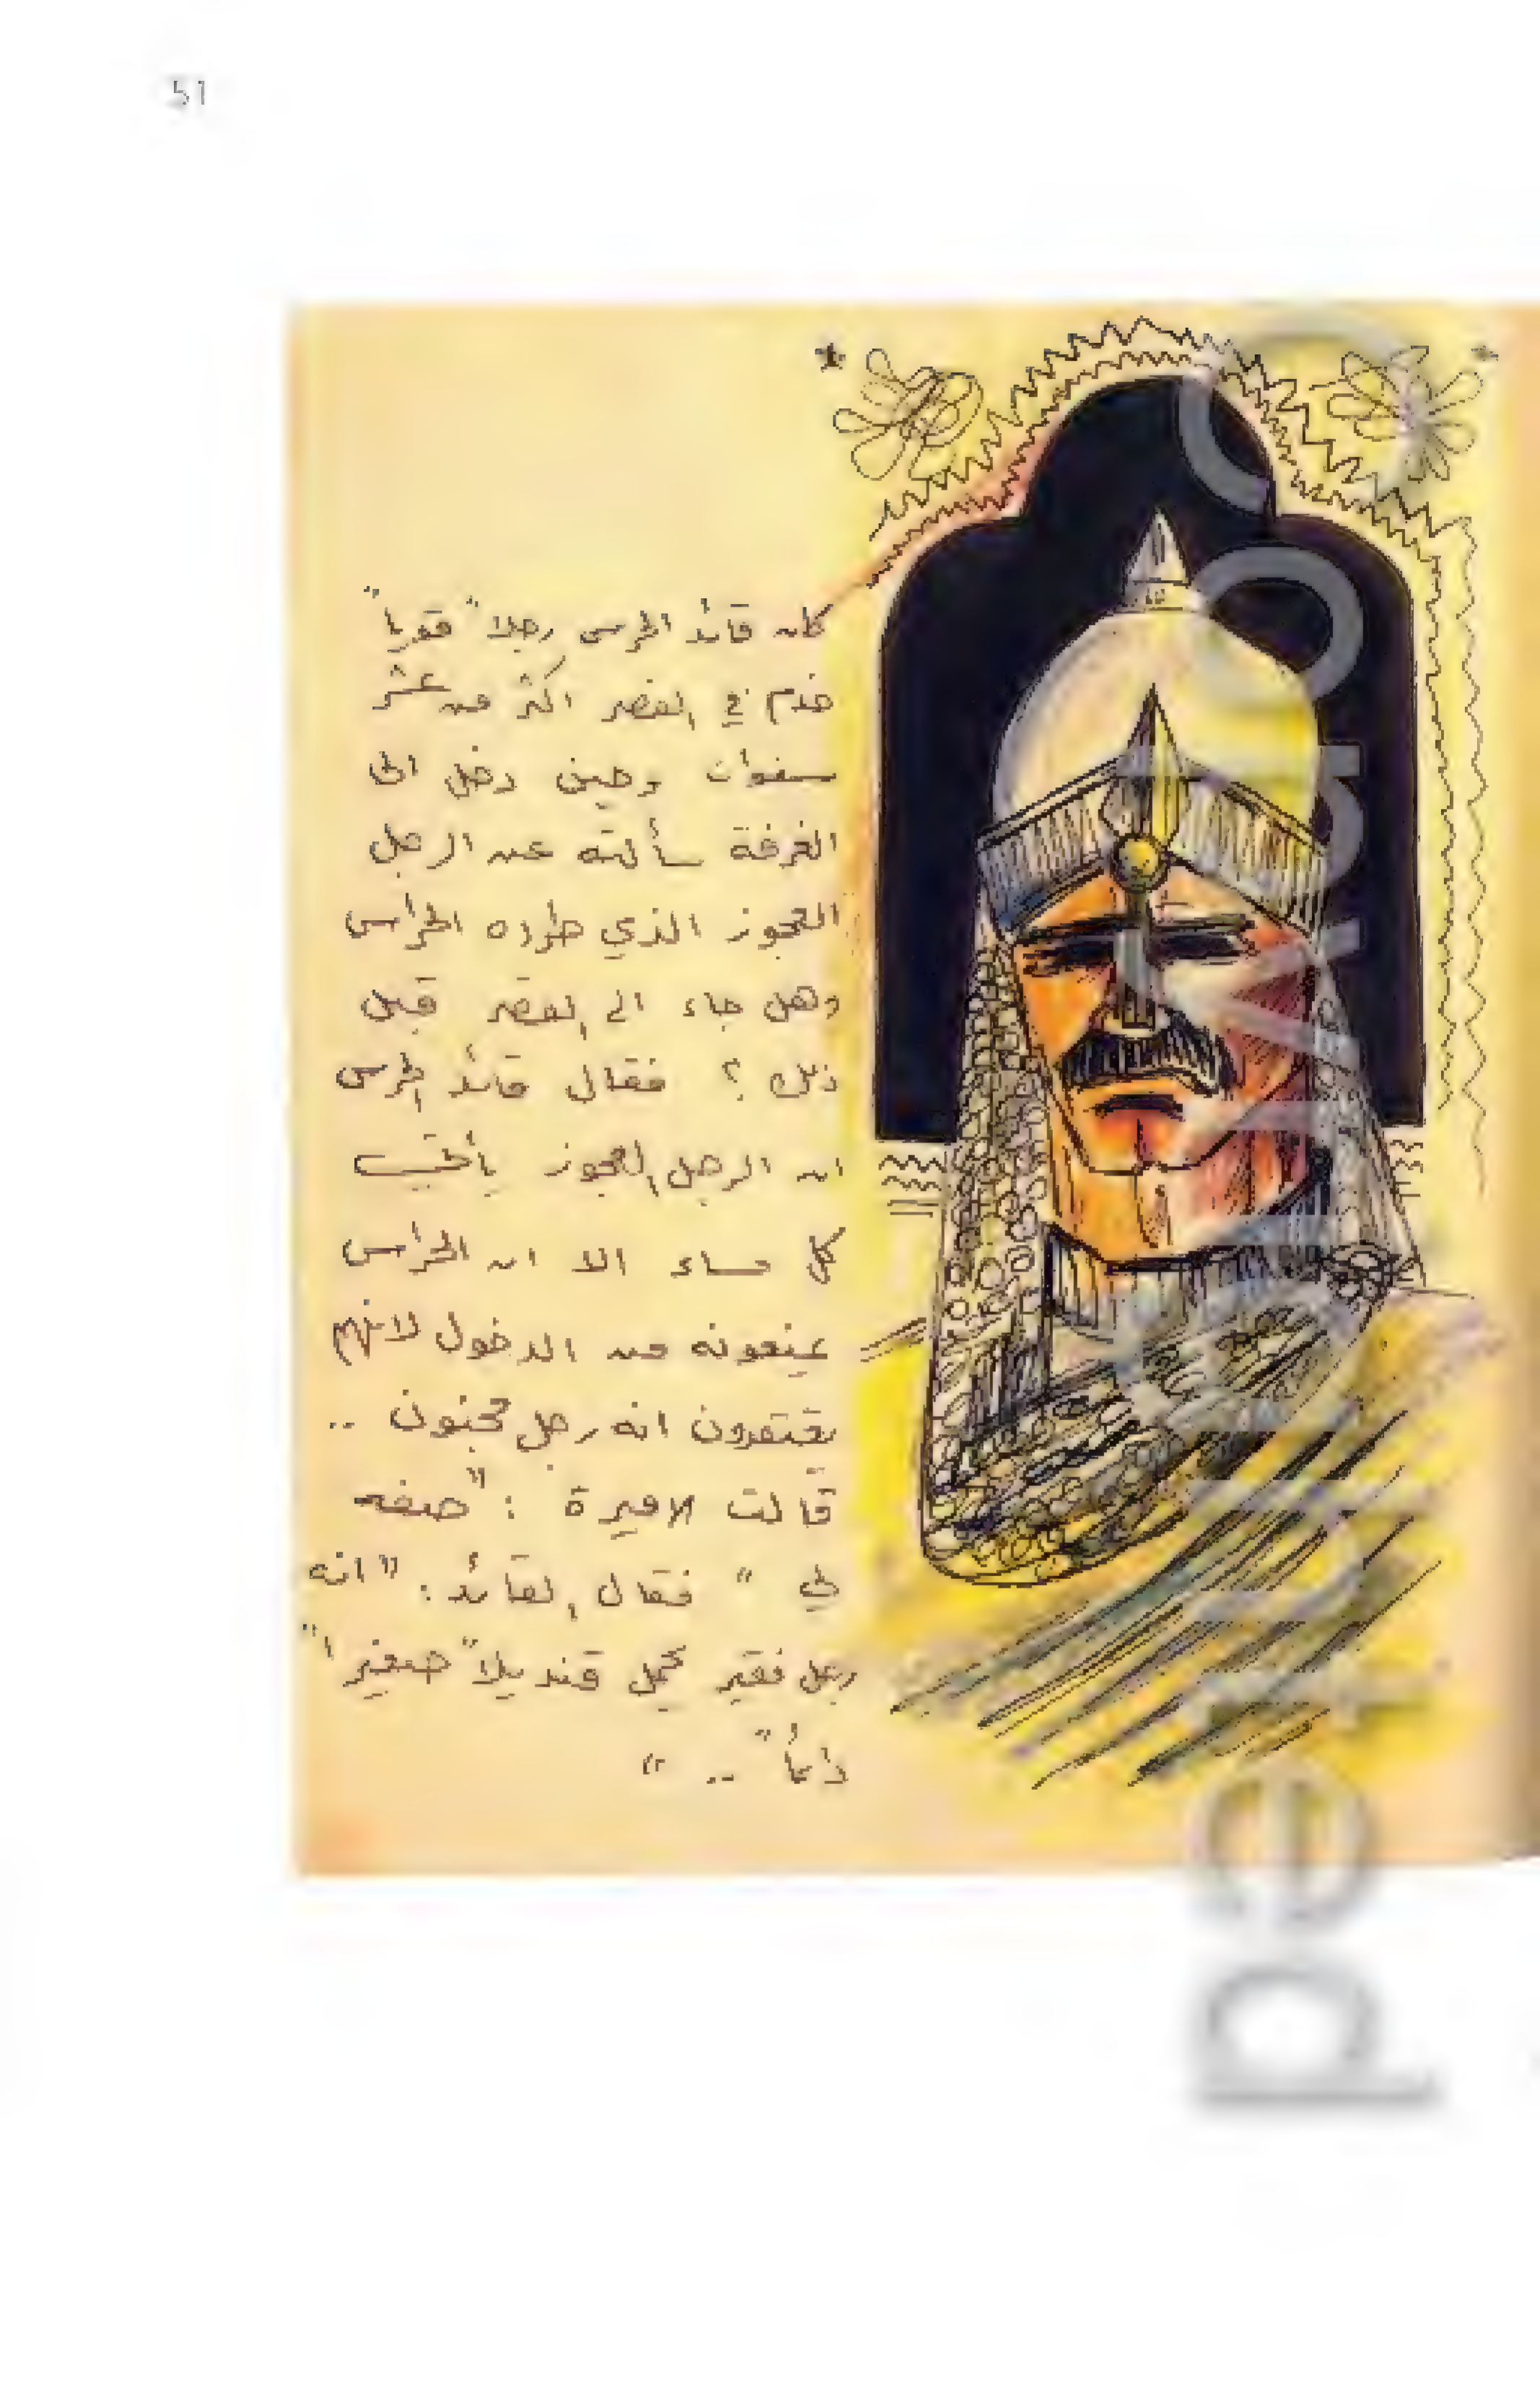 51
كان قائد الحرس رجلاً قوياً
خدم في القصر اكثر من عشر
سنوات وحين دخل الى
الغرفة سألته عن الرجل
العجوز الذي طرده الحراس
وهل جاء الى القصر قبل
ذلك ؟ فقال قائد الحرس
ان الرجل العجوز يأتي
كل مساء الا ان الحراس
يمنعونه من الدخول لانهم
يعتقدون انه رجل مجنون ..
قالت الاميرة : "صفه
لي " فقال القائد : "انه
رجل فقير يحمل قنديلاً صغيراً
دائماً .. "